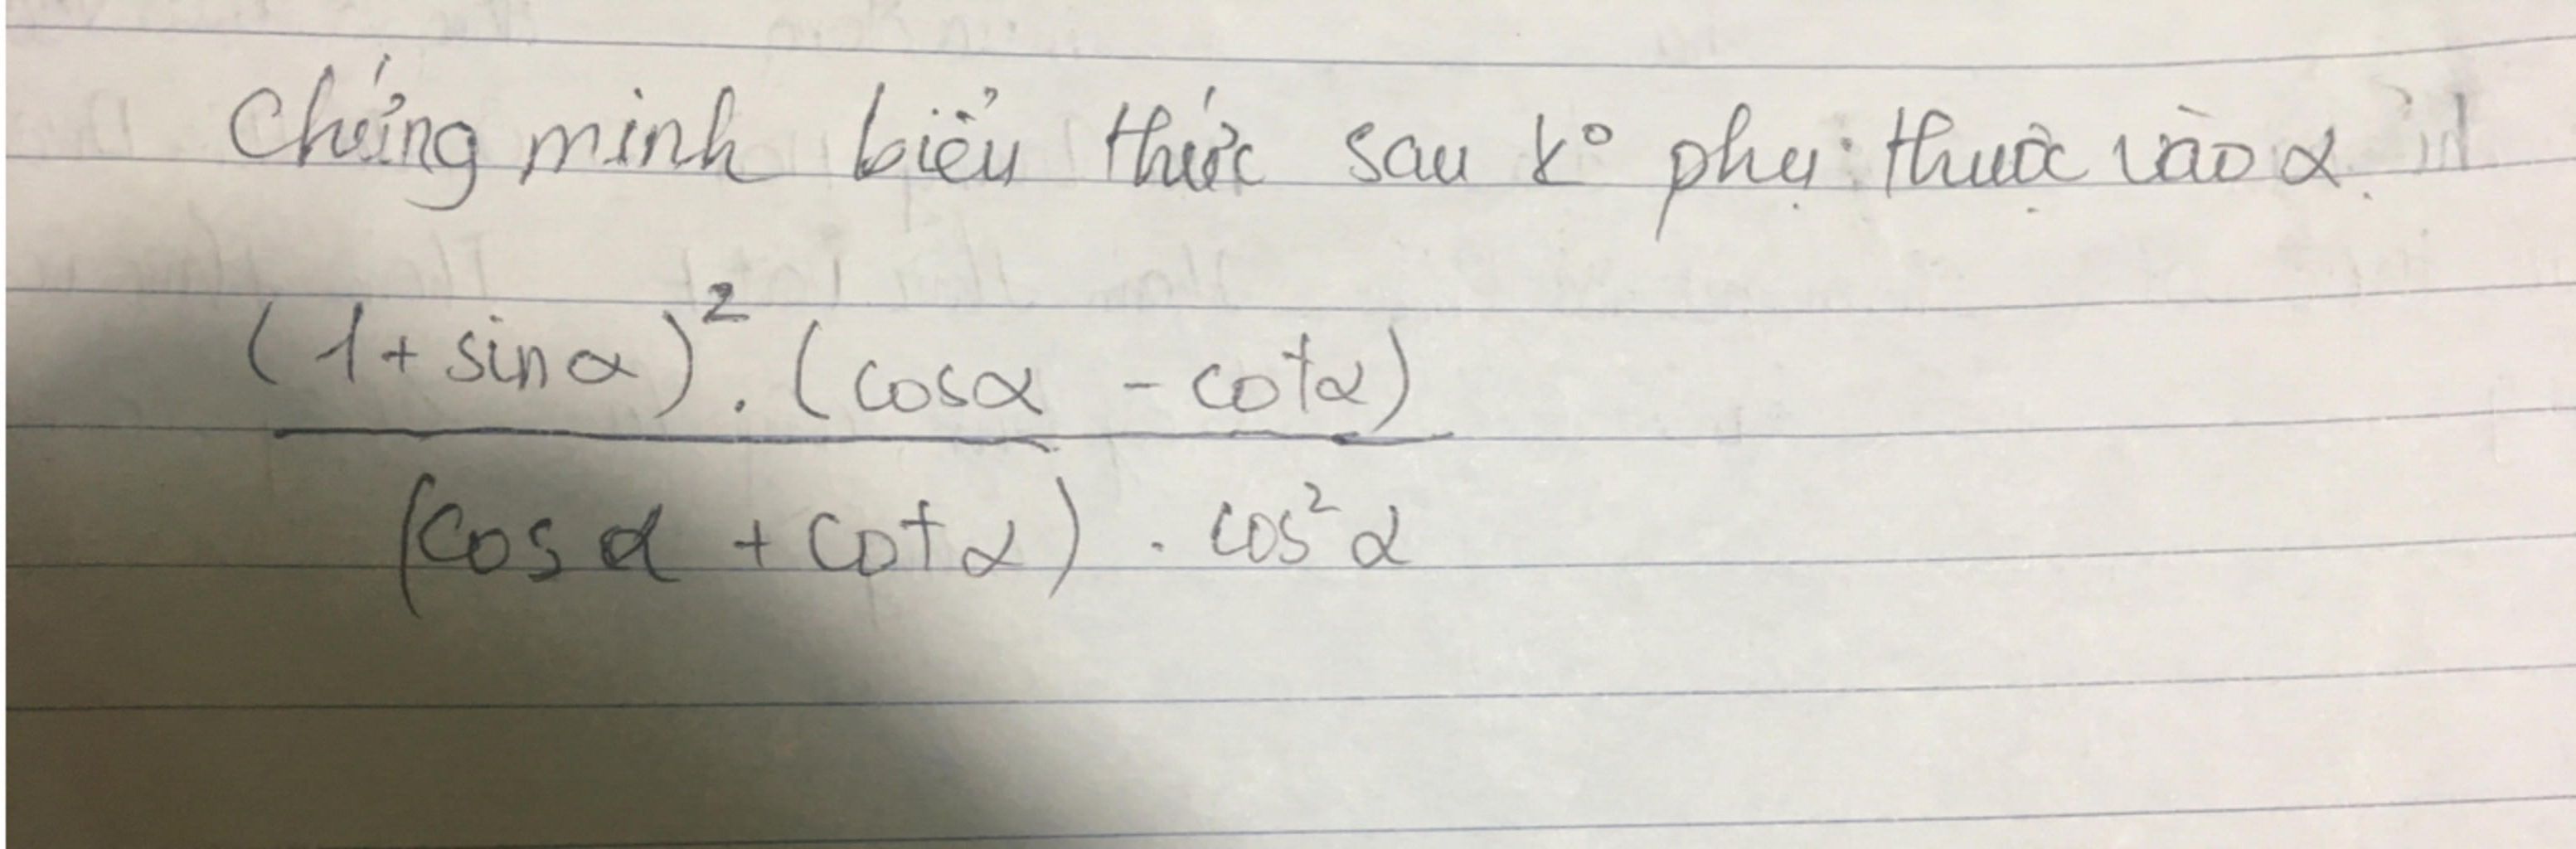 Chứng minh biểu thức sau k° phụ thuộc vào α.
(1 + sin α)² . (cosα - cotα)
(cos α + cot α) . cos² α